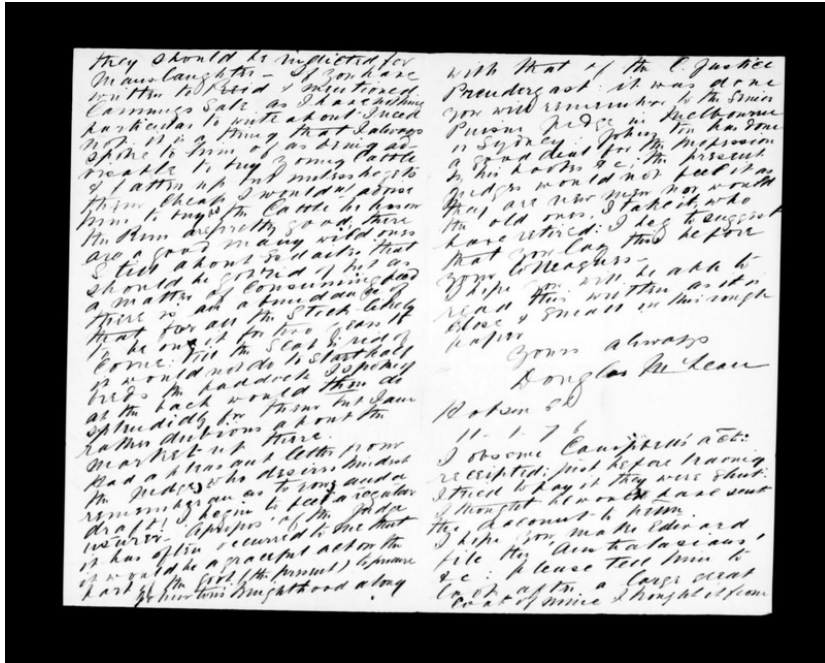 they should be indicted for
Manslaughter - If you have
written to Reid & mentioned
Cannings Sale as I have nothing
particular to write about I need
not. It is a thing that I always
spoke to him of as being ad-
visable to buy young Cattle
& fatten up but unless he gets
them cheap I would advise
him to buy the Cattle he know
the Run are pretty good there
are a good many wild ones
still about & dark that
should be got rid of but as
a matter of consuming feed
there is an abundance of
that for all the Stock likely
to be on it for two years to
come. till the
it would not do to start half
breds the paddock I
at the back would them do
splendidly for them but I am
rather dubious about the
market up there.
Had a pleasant letter from
the Judge who desires kindest
remembrances to you and a
draft! I begin to feel a regular
usurer. Apropos of the Judge
it has often occurred to me that
it would be a graceful act on the
part of the Govt (the present) to procure
Johnston's Knighthood along
with that of the C. Justice
Prendergast: it was done
you will remember to the Senior
Puisne Judge in Melbourne
or Sydney. Johnston has done
a good deal for the profession
in his books &c; the present
judges would not feel it as
they are new men nor would
the old ones, I take it, who
have retired: I beg to suggest
that you lay this before
your Colleagues -
I hope you will be able to
read this written as it is
else & in this rough
paper
Yours always
Douglas McLean
Hobson St
11. 1. 76
I observe Campbell's acct:
receipted: just before leaving
I tried to pay it they were shut:
I thought he would have sent
the account to him.
I hope you make Edward
file the "Australasians,"
&c: please tell him to
look after a large great
coat of mine I bought it from